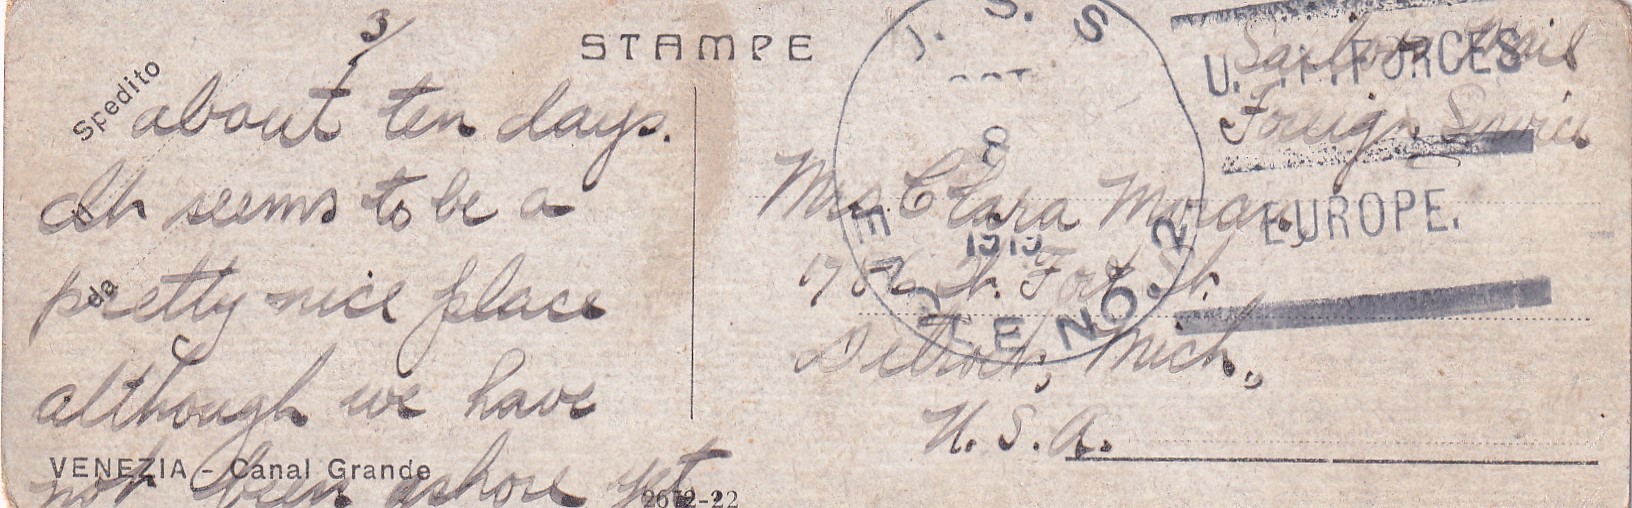 3/
STAMPE
Spedito
da
about ten days.
It seems to be a
pretty nice place
although we have
not been ashore yet
VENEZIA - Canal Grande
2672-22
U.S.S
OCT
8
1919
NO. 12
U. FORCES
EUROPE.
Sailors Mail
Foreign Service
Mrs Clara Moran,
W. Fort St.
Detroit, Mich.,
U.S.A.